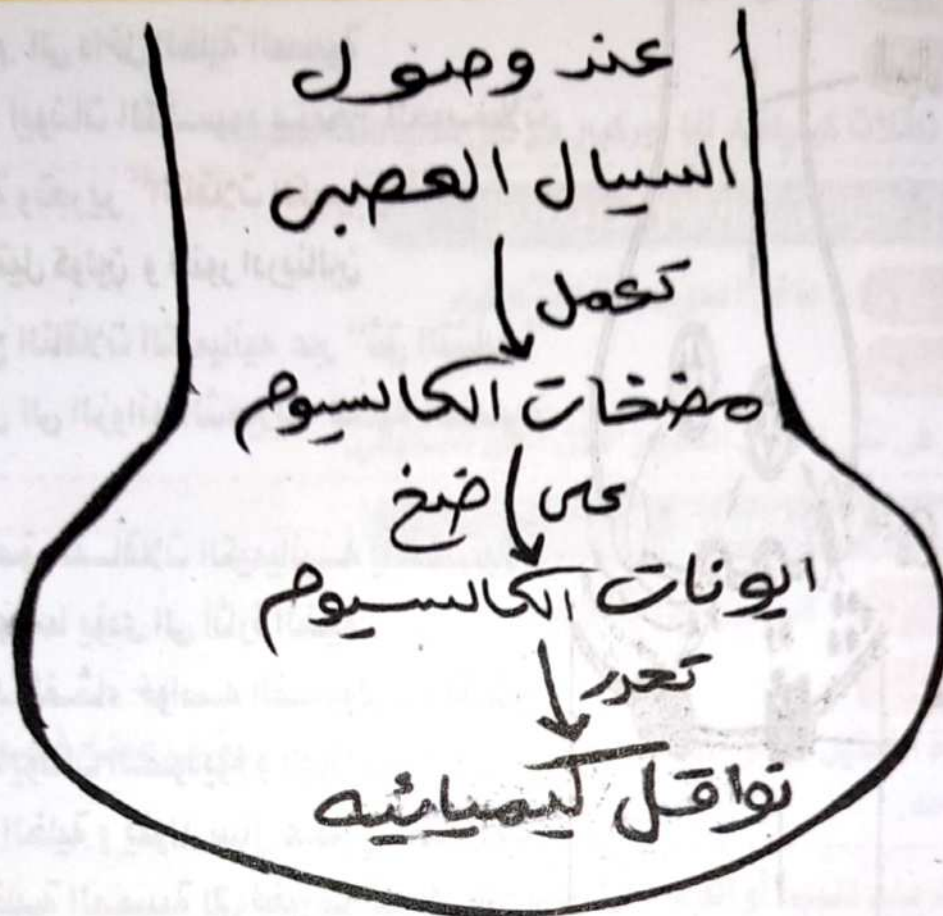 عند وصول
السيال العصبي
تعمل
مضخات الكالسيوم
على ضخ
ايونات الكالسيوم
تحرر
نواقل كيميائيه